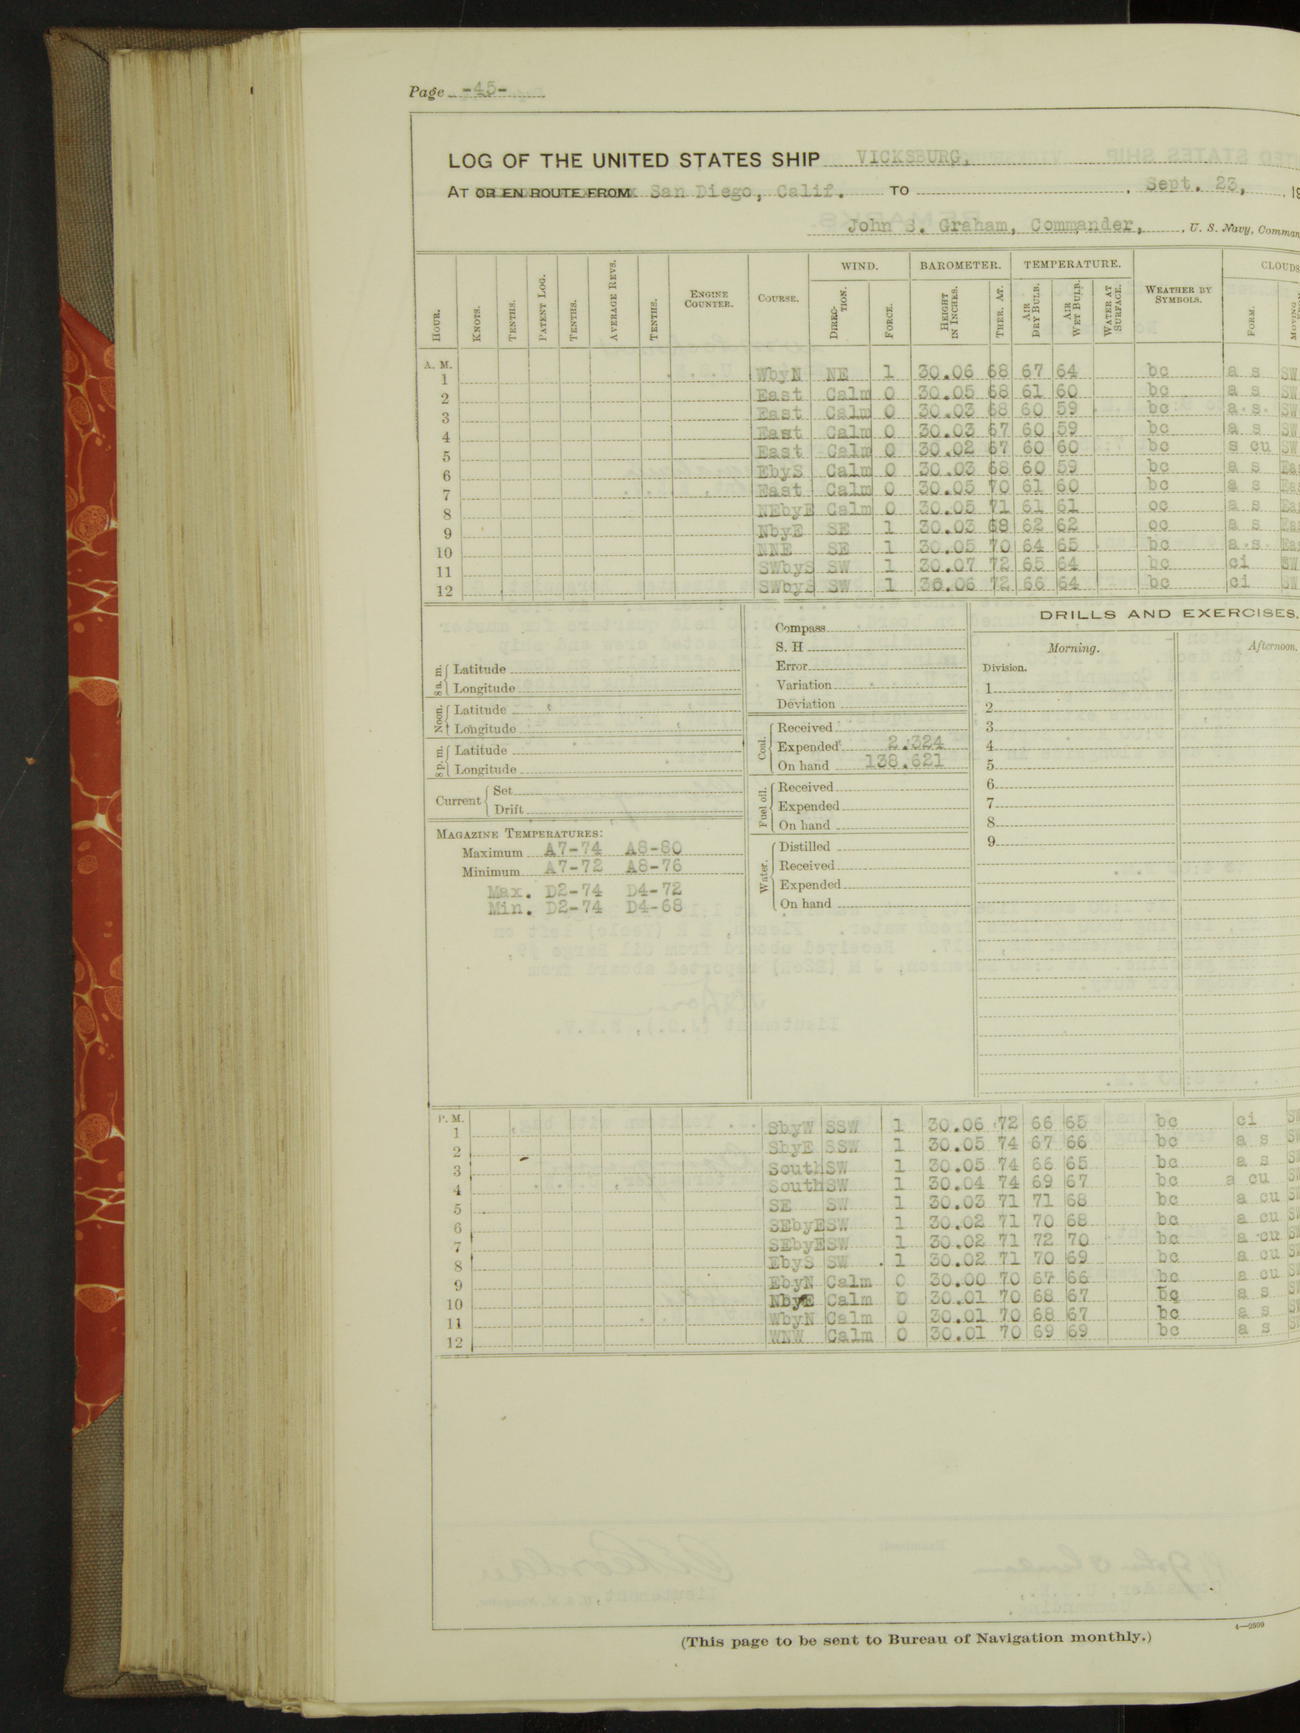 Page -45-
LOG OF THE UNITED STATES SHIP VICKSBURG,
AT OR EN ROUTE FROM San Diego, Calif. TO , Sept. 23, 19
John S. Graham, Commander, , U. S. Navy, Comman
WIND. BAROMETER. TEMPERATURE. CLOUDS
HOUR. KNOTS. TENTHS. PATENT LOG. TENTHS. AVERAGE REVS. TENTHS. ENGINE COUNTER. COURSE. DIRECTION. FORCE. HEIGHT IN INCHES. THER. AT. AIR DRY BULB. AIR WET BULB. WATER AT SURFACE. WEATHER BY SYMBOLS. FORM. MOVING
A. M.
1 WbyN NE 1 30.06 68 67 64 bc a s SW
2 East Calm 0 30.05 68 61 60 bc a s SW
3 East Calm 0 30.03 68 60 59 bc a.s. SW
4 East Calm 0 30.03 67 60 59 bc a s SW
5 East Calm 0 30.02 67 60 60 bc s cu SW
6 EbyS Calm 0 30.03 68 60 59 bc a s Eas
7 East Calm 0 30.05 70 61 60 bc a s Eas
8 NEbyE Calm 0 30.05 71 61 61 oc a s Eas
9 NbyE SE 1 30.03 69 62 62 oc a s Eas
10 NNE SE 1 30.05 70 64 65 bc a.s. Eas
11 SWbyS SW 1 30.07 72 65 64 bc ci SW
12 SWbyS SW 1 30.06 72 66 64 bc ci SW
8 a. m. Latitude
Longitude
Noon. Latitude
Longitude
8 p. m. Latitude
Longitude
Current Set
Drift
MAGAZINE TEMPERATURES:
Maximum A7-74 A8-80
Minimum A7-72 A8-76
Max. D2-74 D4-72
Min. D2-74 D4-68
Compass
S. H
Error
Variation
Deviation
Coal. Received
Expended 2.324
On hand 138.621
Fuel oil. Received
Expended
On hand
Water. Distilled
Received
Expended
On hand
DRILLS AND EXERCISES.
Morning. Afternoon.
Division.
1
2
3
4
5
6
7
8
9
P. M.
1 SbyW SSW 1 30.06 72 66 65 bc ci SW
2 SbyE SSW 1 30.05 74 67 66 bc a s SW
3 South SW 1 30.05 74 66 65 bc a s SW
4 South SW 1 30.04 74 69 67 bc a cu SW
5 SE SW 1 30.03 71 71 68 bc a cu SW
6 SEbyE SW 1 30.02 71 70 68 bc a cu SW
7 SEbyE SW 1 30.02 71 72 70 bc a cu SW
8 EbyS SW 1 30.02 71 70 69 bc a cu SW
9 EbyN Calm 0 30.00 70 67 66 bc a cu SW
10 NbyE Calm 0 30.01 70 68 67 bc a s SW
11 WbyN Calm 0 30.01 70 68 67 bc a s SW
12 WNW Calm 0 30.01 70 69 69 bc a s SW
4—2509
(This page to be sent to Bureau of Navigation monthly.)